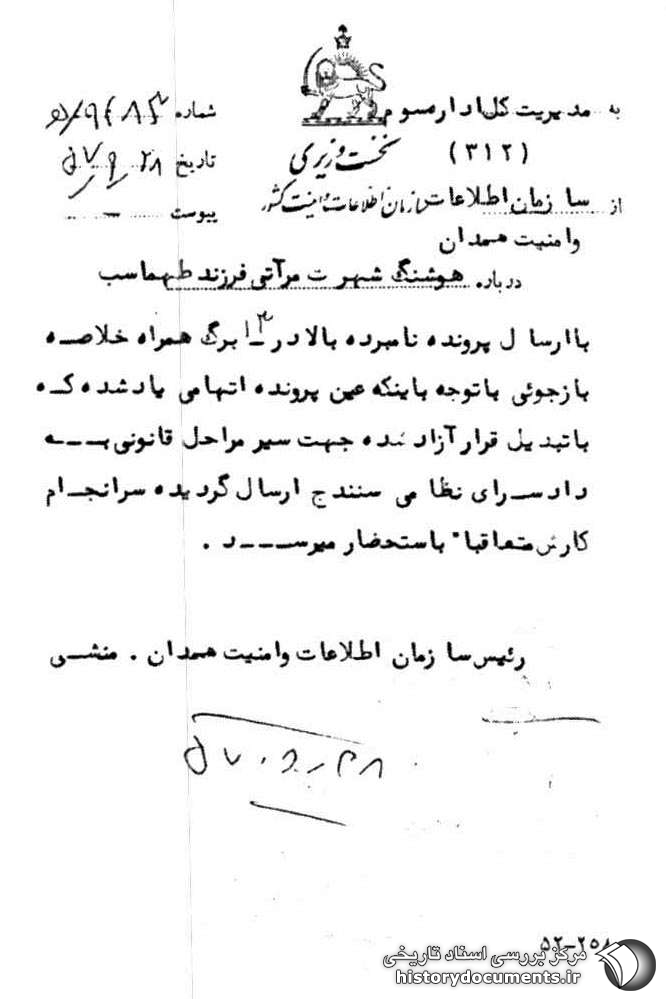 به مدیریت کل اداره سوم
(۳۱۲)
نخست وزیری
سازمان اطلاعات و امنیت کشور
از سازمان اطلاعات
وامنیت همدان
شماره
تاریخ ۵۷/۹/۲۸
پیوست –
درباره هوشنگ شهرت مرآتی فرزند طهماسب
باارسال پرونده نامبرده بالا در ۱۳ برگ همراه خلاصه
بازجوئی باتوجه باینکه عین پرونده اتهامی یادشده که
باتبدیل قرار آزاد شده جهت سیر مراحل قانونی بـــه
دادسرای نظامی سنندج ارسال گردیده سرانجام
کارش متعاقبا" باستحضار میرســـد .
رئیس سازمان اطلاعات وامنیت همدان . منشــی
۵۷.۹.۲۸
۵۲-۲۵۸
مرکز بررسی اسناد تاریخی
historydocuments.ir